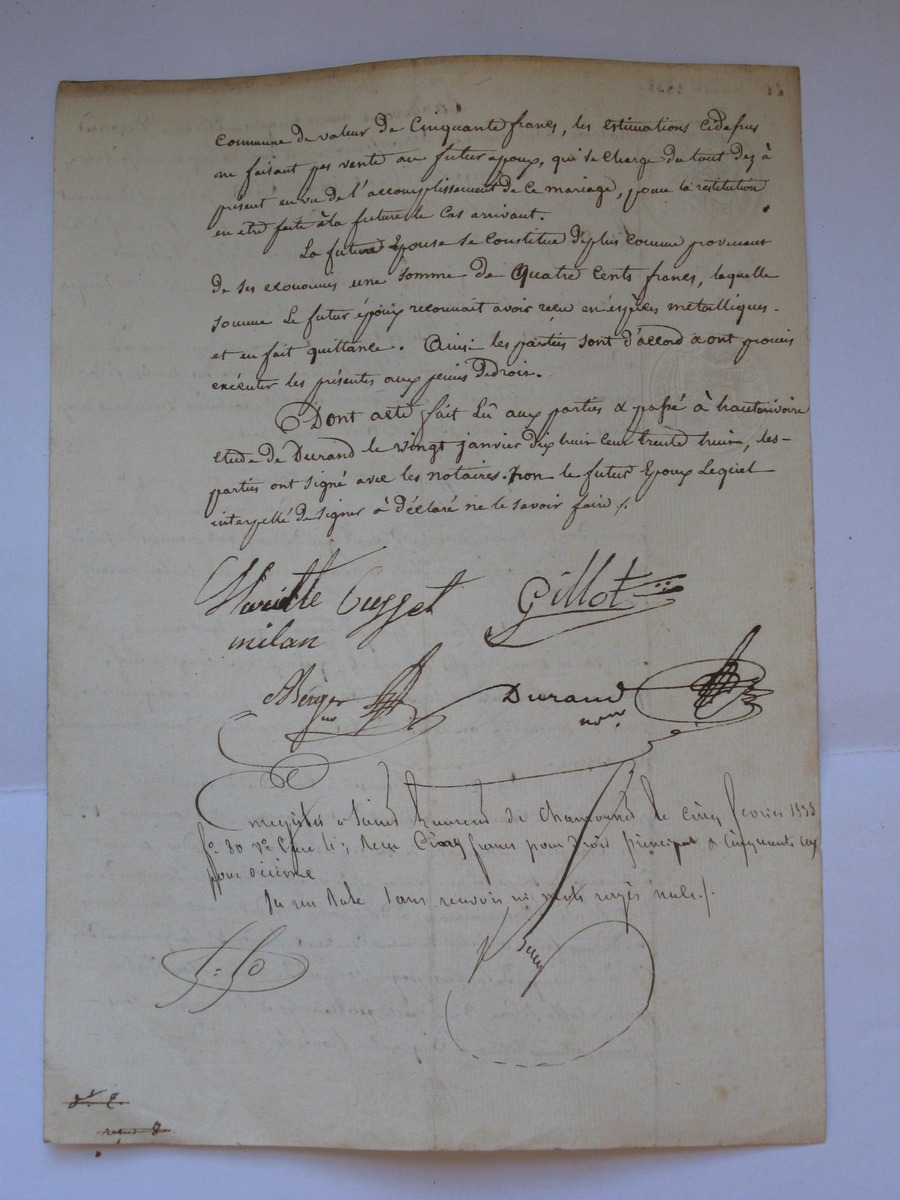 commune de valeur de Cinquante francs, les estimations cidessus
ne faisant pas vente au futur époux, qui se charge du tout dez à
présent en vu de l'accomplissement de ce mariage, pour la restitution
en etre faite à la future le cas arrivant.
La future Epouse se Constitue deplus comme provenant
de ses economies une somme de Quatre Cents francs, laquelle
somme Le futur époux reconnait avoir reçu en espèces métalliques
et en fait quittance. Ainsi les parties sont d'accord & ont promis
exécuter les présentes aux peines Dedroit.
Dont acte fait Lû aux parties & passé à hauterivoire
etude de Durand le vingt janvier dix huit cent trente huit, les
parties ont signé avec les notaires. Non le futur Epoux Lequel
interpellé de signer à déclaré ne le savoir faire /.
Mariette Cusset Gillot
milan
Berger Durand
nore
enregistré a Saint Laurent de Chamousset le cinq fevrier 1838
fo. 80 Vo. Case ; Reçu Cinq francs pour droit principal & cinquante
pour décime
sans renvois ni mots rayés nuls /.